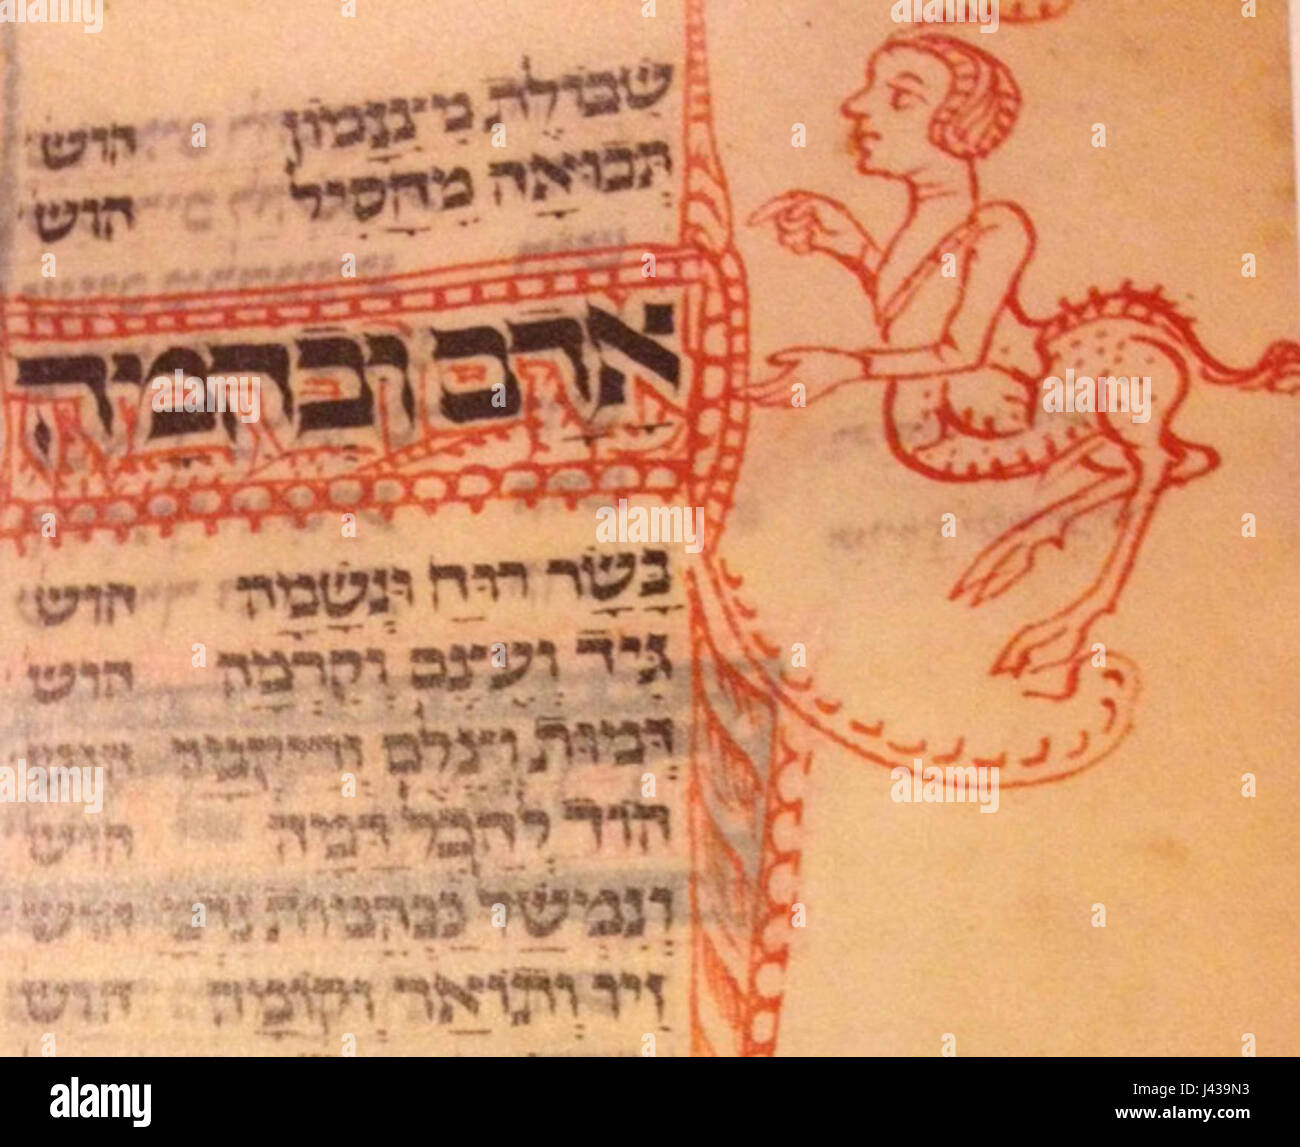 שִׁבּוֹלֶת מִצִּנָּמוֹן הוש
תְּבוּאָה מֵחָסִיל הוש
אָדָם וּבְהֵמָה
בָּשָׂר רוּחַ וּנְשָׁמָה הוש
גִּיד וְעֶצֶם וְקָרְמָה הוש
דְּמוּת וְצֶלֶם וְרִיקְמָה הוש
הוֹד לַהֶבֶל דָּמָה הוש
וְנִמְשַׁל כַּבְּהֵמוֹת נִדְמוּ הוש
זִיו וְתוֹאַר וְקוֹמָה הוש
alamy stock photo
alamy
J439N3
www.alamy.com